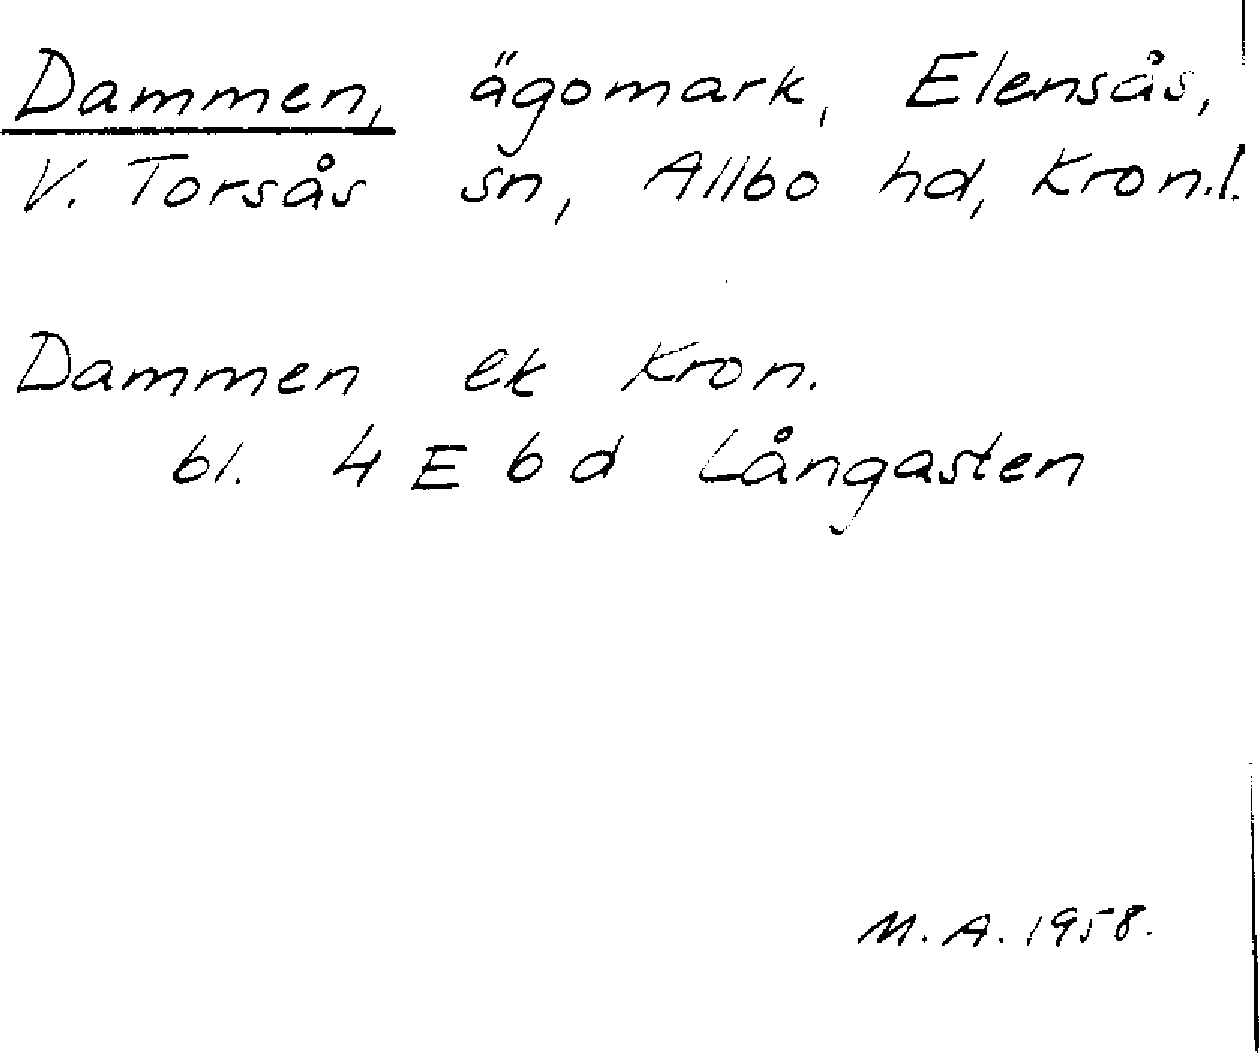 Dammen, ägomark, Elensås,
V. Torsås sn, Allbo hd, Kron.l.
Dammen ek Kron.
bl. 4 E 6 d Långasten
M. A. 1958.